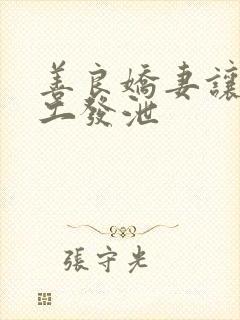 善良嬌妻讓
工發泄
張守光